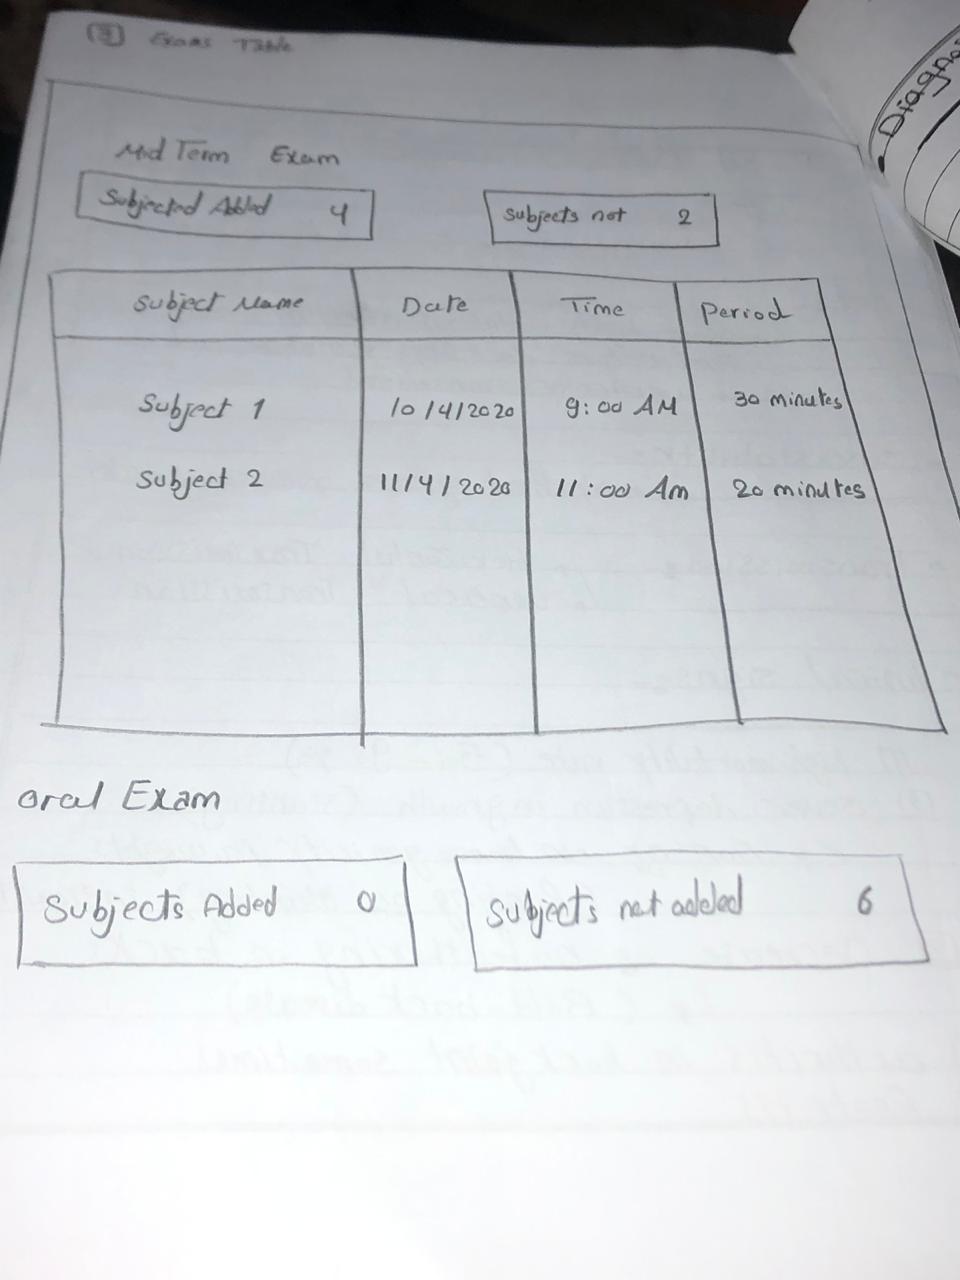 (3) Exams Table
Mid Term Exam
Subjected Added 4
Subjects not 2
Subject Name Date Time Period
Subject 1 10/4/2020 9:00 AM 30 minutes
Subject 2 11/4/2020 11:00 Am 20 minutes
oral Exam
Subjects Added 0
Subjects not added 6